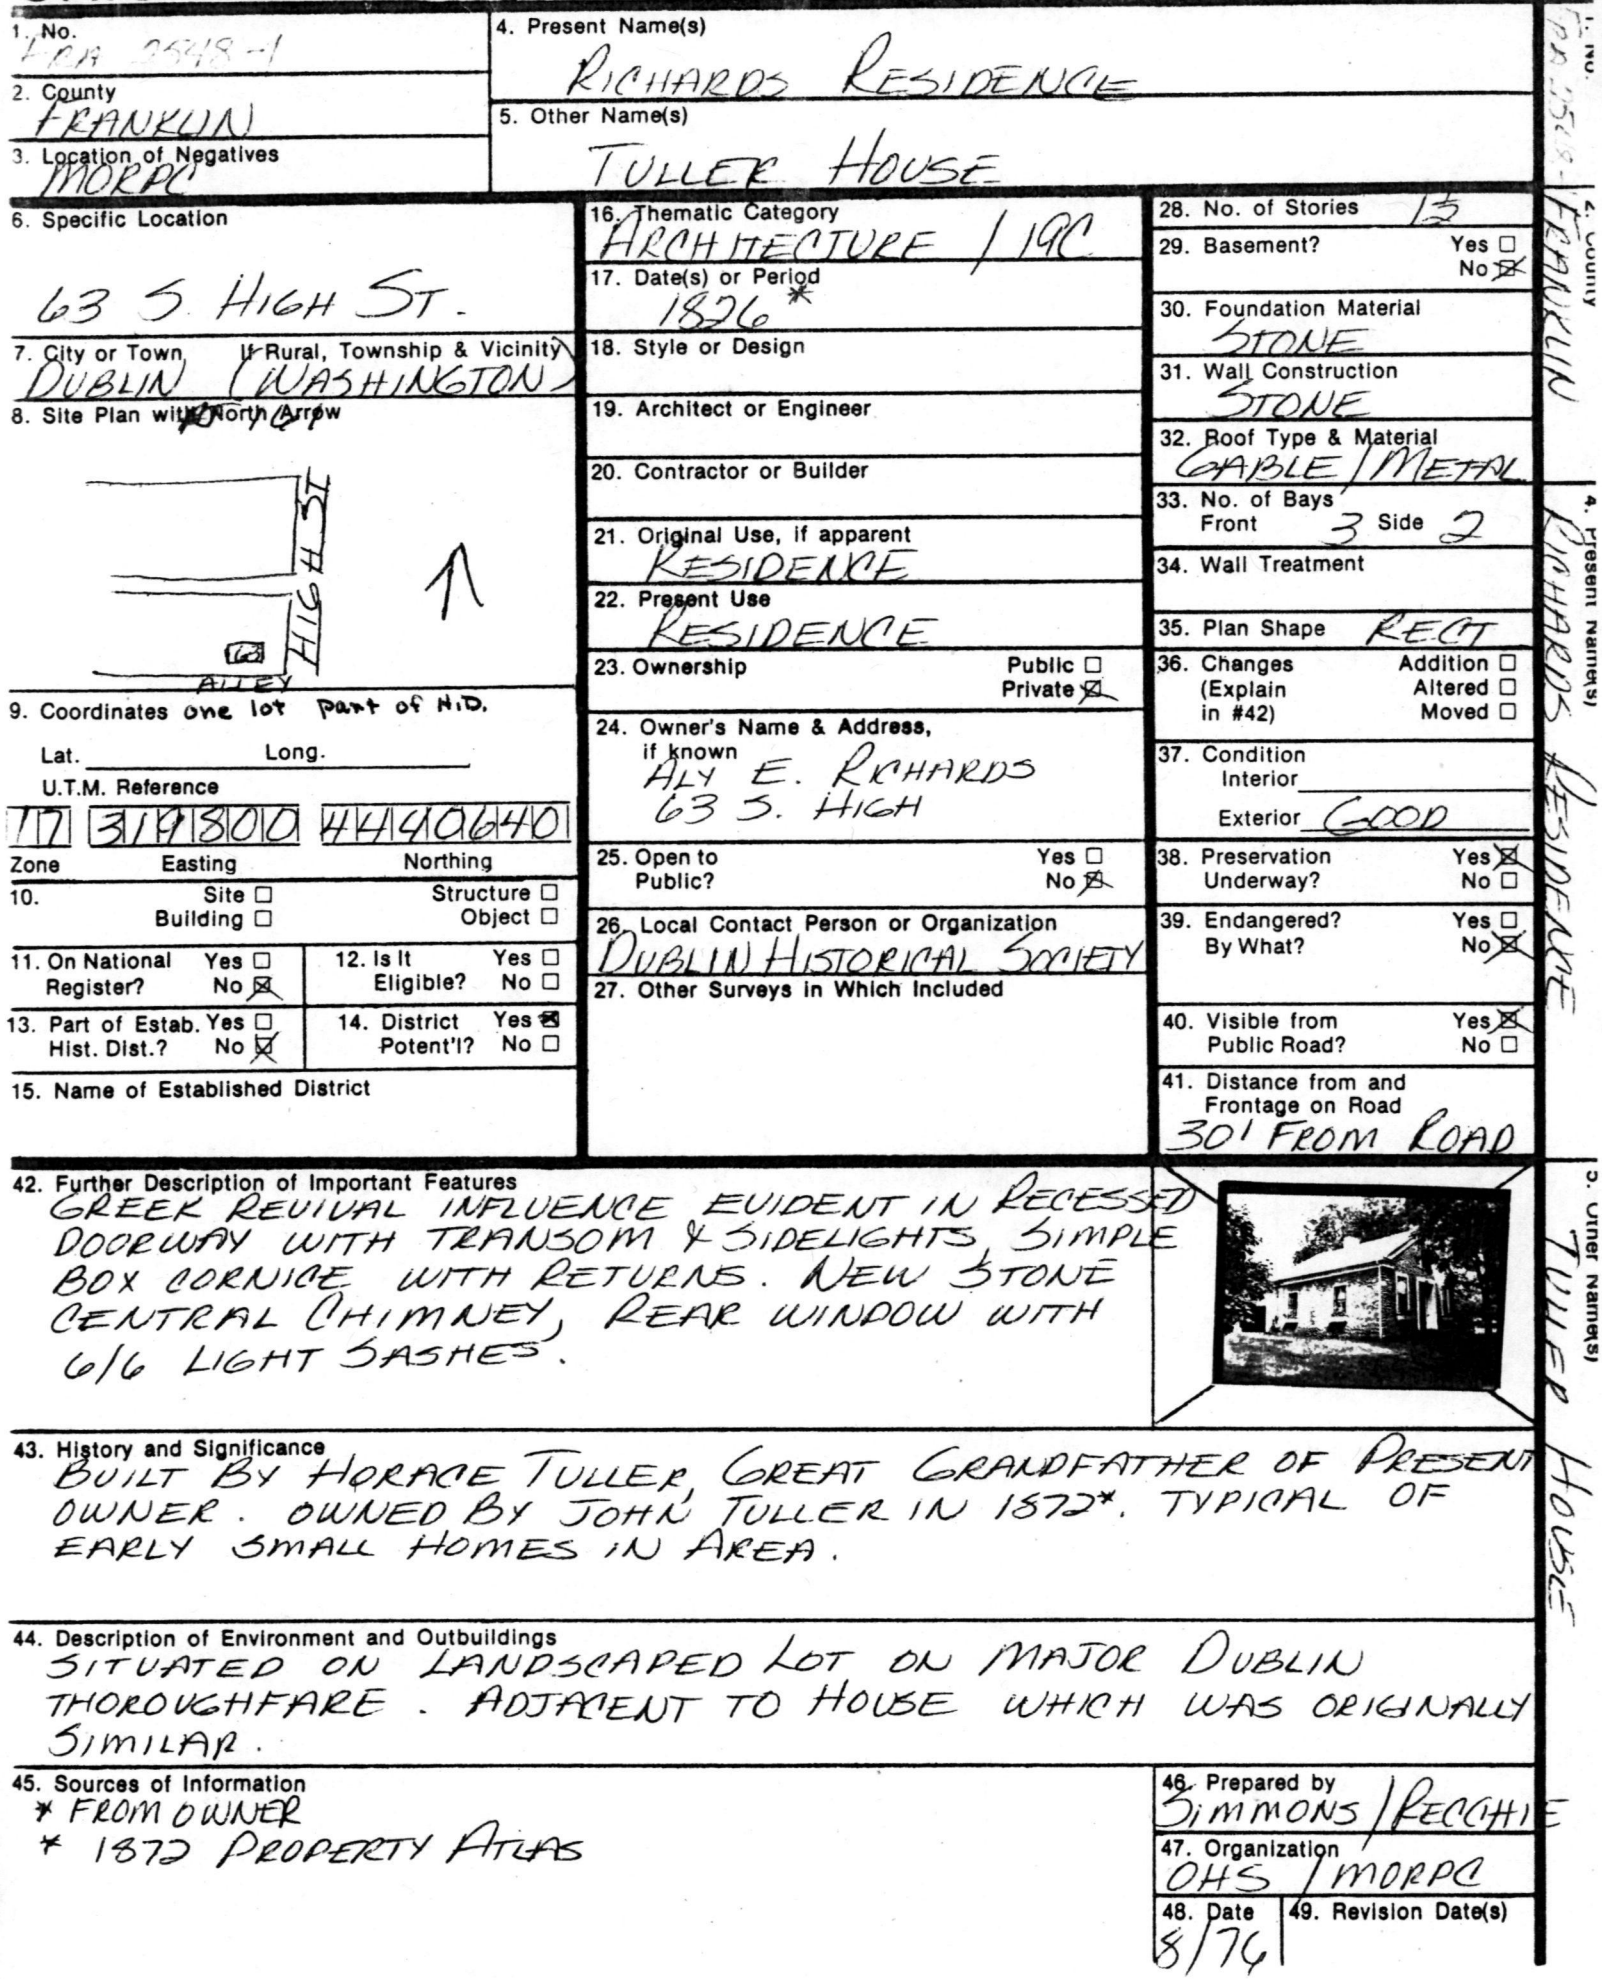 1. No.
FRA 2548-1
2. County
FRANKLIN
3. Location of Negatives
MORPC
4. Present Name(s)
RICHARDS RESIDENCE
5. Other Name(s)
TULLER HOUSE
6. Specific Location
63 S. HIGH ST.
7. City or Town If Rural, Township & Vicinity
DUBLIN (WASHINGTON)
8. Site Plan with North Arrow
HIGH ST
63
ALLEY
9. Coordinates one lot part of H.D.
Lat. Long.
U.T.M. Reference
17 319800 4440640
Zone Easting Northing
10. Site □ Structure □
Building □ Object □
11. On National Yes □
Register? No ☒
12. Is It Yes □
Eligible? No □
13. Part of Estab. Yes □
Hist. Dist.? No ☒
14. District Yes ☒
Potent'l? No □
15. Name of Established District
16. Thematic Category
ARCHITECTURE / 19C
17. Date(s) or Period
1826*
18. Style or Design
19. Architect or Engineer
20. Contractor or Builder
21. Original Use, if apparent
RESIDENCE
22. Present Use
RESIDENCE
23. Ownership Public □
Private ☒
24. Owner's Name & Address,
if known
ALY E. RICHARDS
63 S. HIGH
25. Open to Yes □
Public? No ☒
26. Local Contact Person or Organization
DUBLIN HISTORICAL SOCIETY
27. Other Surveys in Which Included
28. No. of Stories 1½
29. Basement? Yes □
No ☒
30. Foundation Material
STONE
31. Wall Construction
STONE
32. Roof Type & Material
GABLE / METAL
33. No. of Bays
Front 3 Side 2
34. Wall Treatment
35. Plan Shape RECT
36. Changes Addition □
(Explain Altered □
in #42) Moved □
37. Condition
Interior
Exterior GOOD
38. Preservation Yes ☒
Underway? No □
39. Endangered? Yes □
By What? No ☒
40. Visible from Yes ☒
Public Road? No □
41. Distance from and
Frontage on Road
30' FROM ROAD
42. Further Description of Important Features
GREEK REVIVAL INFLUENCE EVIDENT IN RECESSED
DOORWAY WITH TRANSOM & SIDELIGHTS, SIMPLE
BOX CORNICE WITH RETURNS. NEW STONE
CENTRAL CHIMNEY, REAR WINDOW WITH
6/6 LIGHT SASHES.
43. History and Significance
BUILT BY HORACE TULLER, GREAT GRANDFATHER OF PRESENT
OWNER. OWNED BY JOHN TULLER IN 1872*. TYPICAL OF
EARLY SMALL HOMES IN AREA.
44. Description of Environment and Outbuildings
SITUATED ON LANDSCAPED LOT ON MAJOR DUBLIN
THOROUGHFARE. ADJACENT TO HOUSE WHICH WAS ORIGINALLY
SIMILAR.
45. Sources of Information
* FROM OWNER
* 1872 PROPERTY ATLAS
46. Prepared by
SIMMONS / RECCHIE
47. Organization
OHS / MORPC
48. Date
8/76
49. Revision Date(s)
1. No.
2. County
FRANKLIN
4. Present Name(s)
RICHARDS RESIDENCE
5. Other Name(s)
TULLER HOUSE